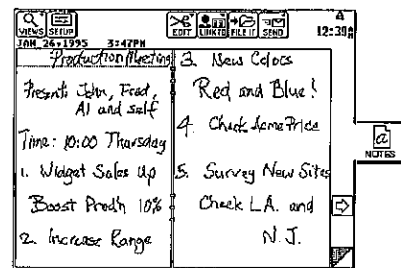 VIEWS SETUP
EDIT LINK TO FILE IT SEND
12:39
JAN 26, 1995 3:47PM
Production Meeting
Present: John, Fred,
Al and self
Time: 10:00 Thursday
1. Widget Sales Up
Boost Prod'n 10%
2. Increase Range
3. New Colors
Red and Blue!
4. Check Acme Price
5. Survey New Sites
Check L.A. and
N.J.
a
NOTES